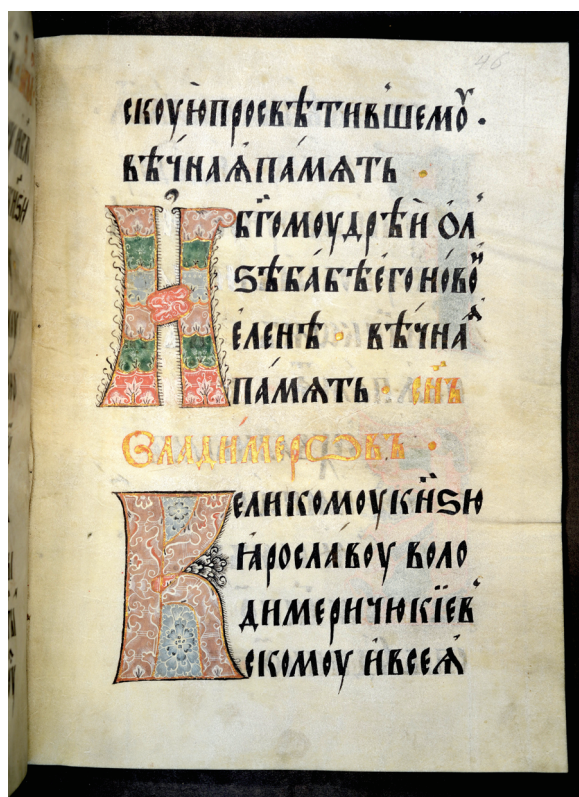 46
скоую просвѣтившемоу ·
вѣчнаѧ память ·
И бг҃омоудрѣй ѻл
ѕѣ бабѣ его новой
еленѣ · вѣчнаа
память · сн҃ъ
Владимерѡвъ ·
Великомоу кн҃ѕю
ꙗрославоу воло
димеричю кїев
скомоу и всеѧ